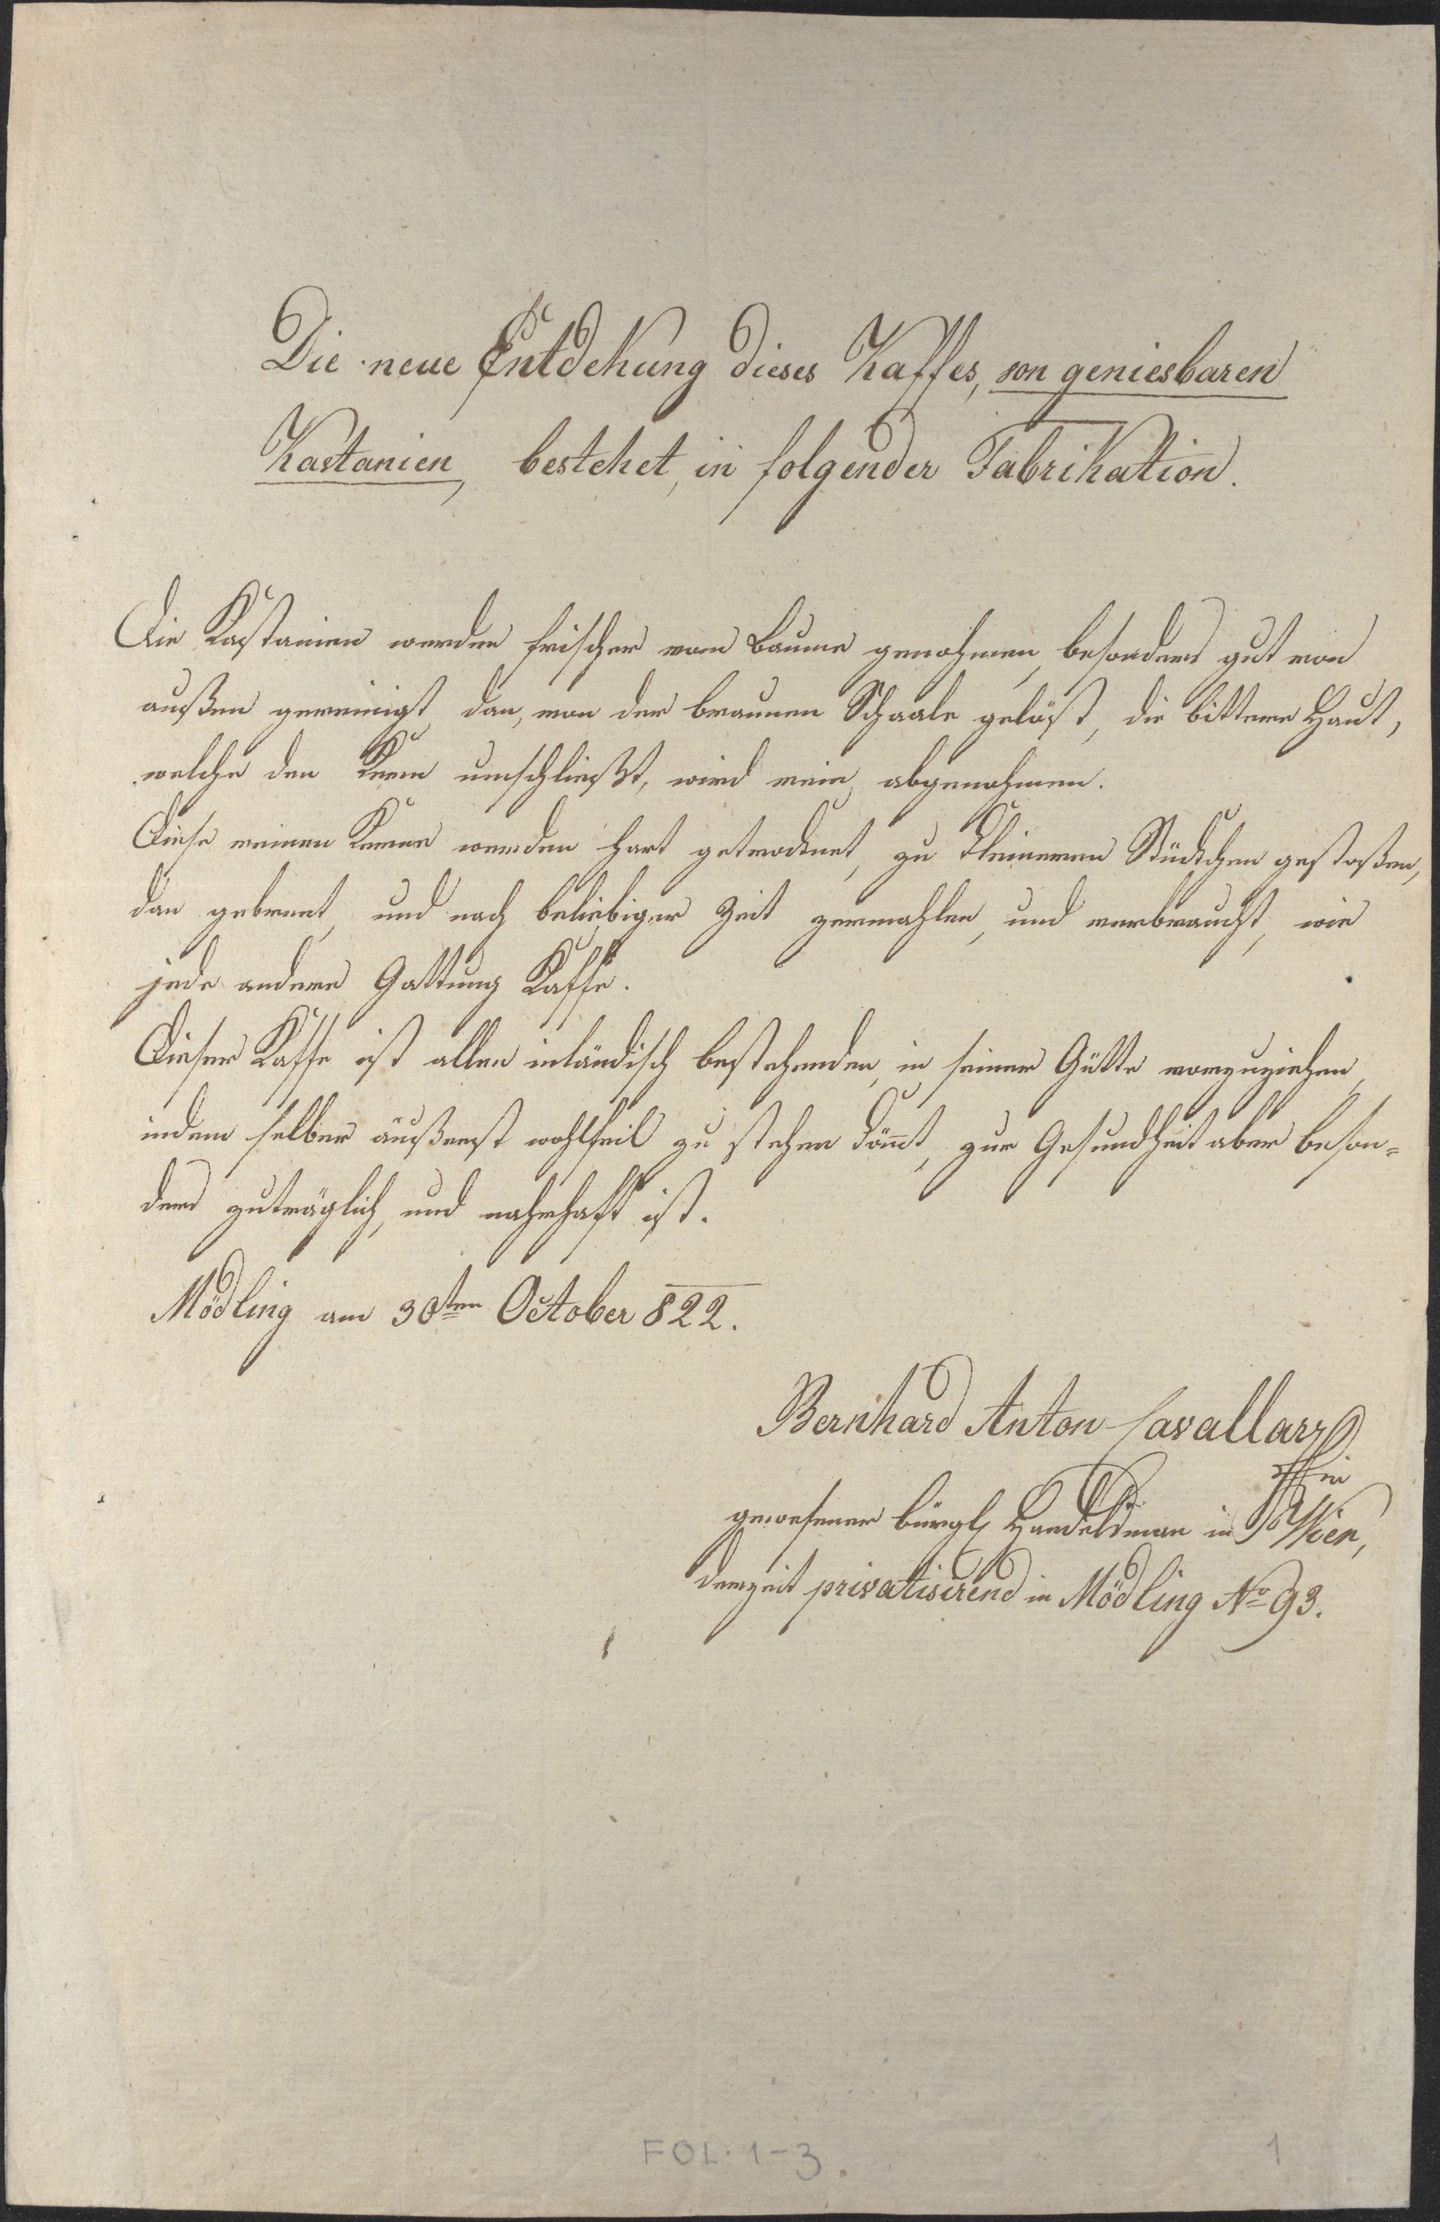 Die neue Entdekung dieses Kaffes, von geniesbaren
Kastanien, bestehet, in folgender Fabrikation.
Die Kastanien werden frischer vom Baume genohmen, besonders gut von
außen gereinigt, dan, von der braunen Schaale gelöst, die bittere Haut,
welche den Kern umschließt, wird rein, abgenohmen.
Diese reinen Kerne werden hart getrocknet, zu kleineren Stückchen gestoßen,
dan gebrent, und nach beliebiger Zeit zermahlen, und verbraucht, wie
jede andere Gattung Kaffe.
Dieser Kaffe ist allen inländisch bestehenden, in seiner Gütte vorzuziehen,
indem selber äußerst wohlfeil zu stehen kömt, zur Gesundheit aber beson-
ders zuträglich, und nahrhaft ist.
Mödling am 30ten October 822.
Bernhard Anton Cavallar
gewesener bürgl Handelsman in Wien,
derzeit privatisirend in Mödling No 93.
FOL. 1-3.
1